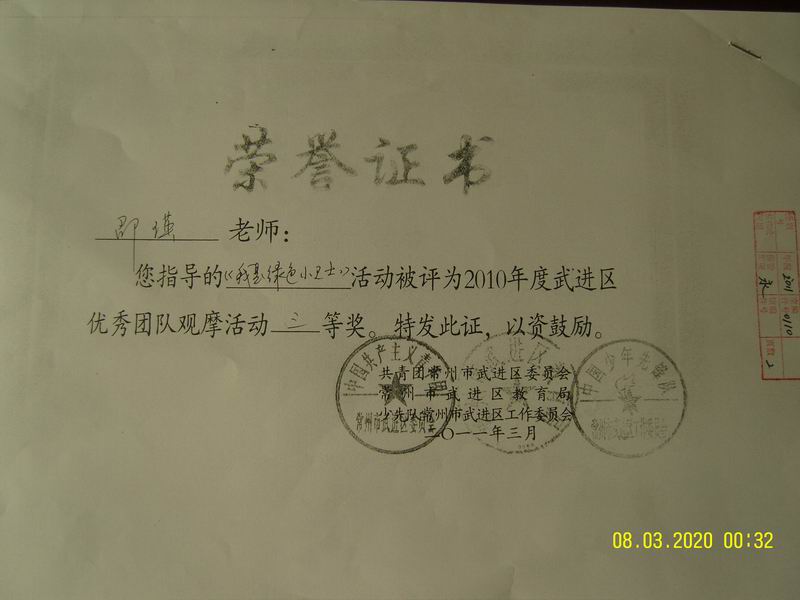 荣誉证书
邵瑛 老师：
您指导的《我是绿色小卫士》活动被评为2010年度武进区
优秀团队观摩活动 三 等奖。特发此证，以资鼓励。
共青团常州市武进区委员会
常州市武进区教育局
少先队常州市武进区工作委员会
二〇一一年三月
中国共产主义青年团
常州市武进区委员会
中国少年先锋队
常州市武进区工作委员会
2011
0110
永
08.03.2020 00:32